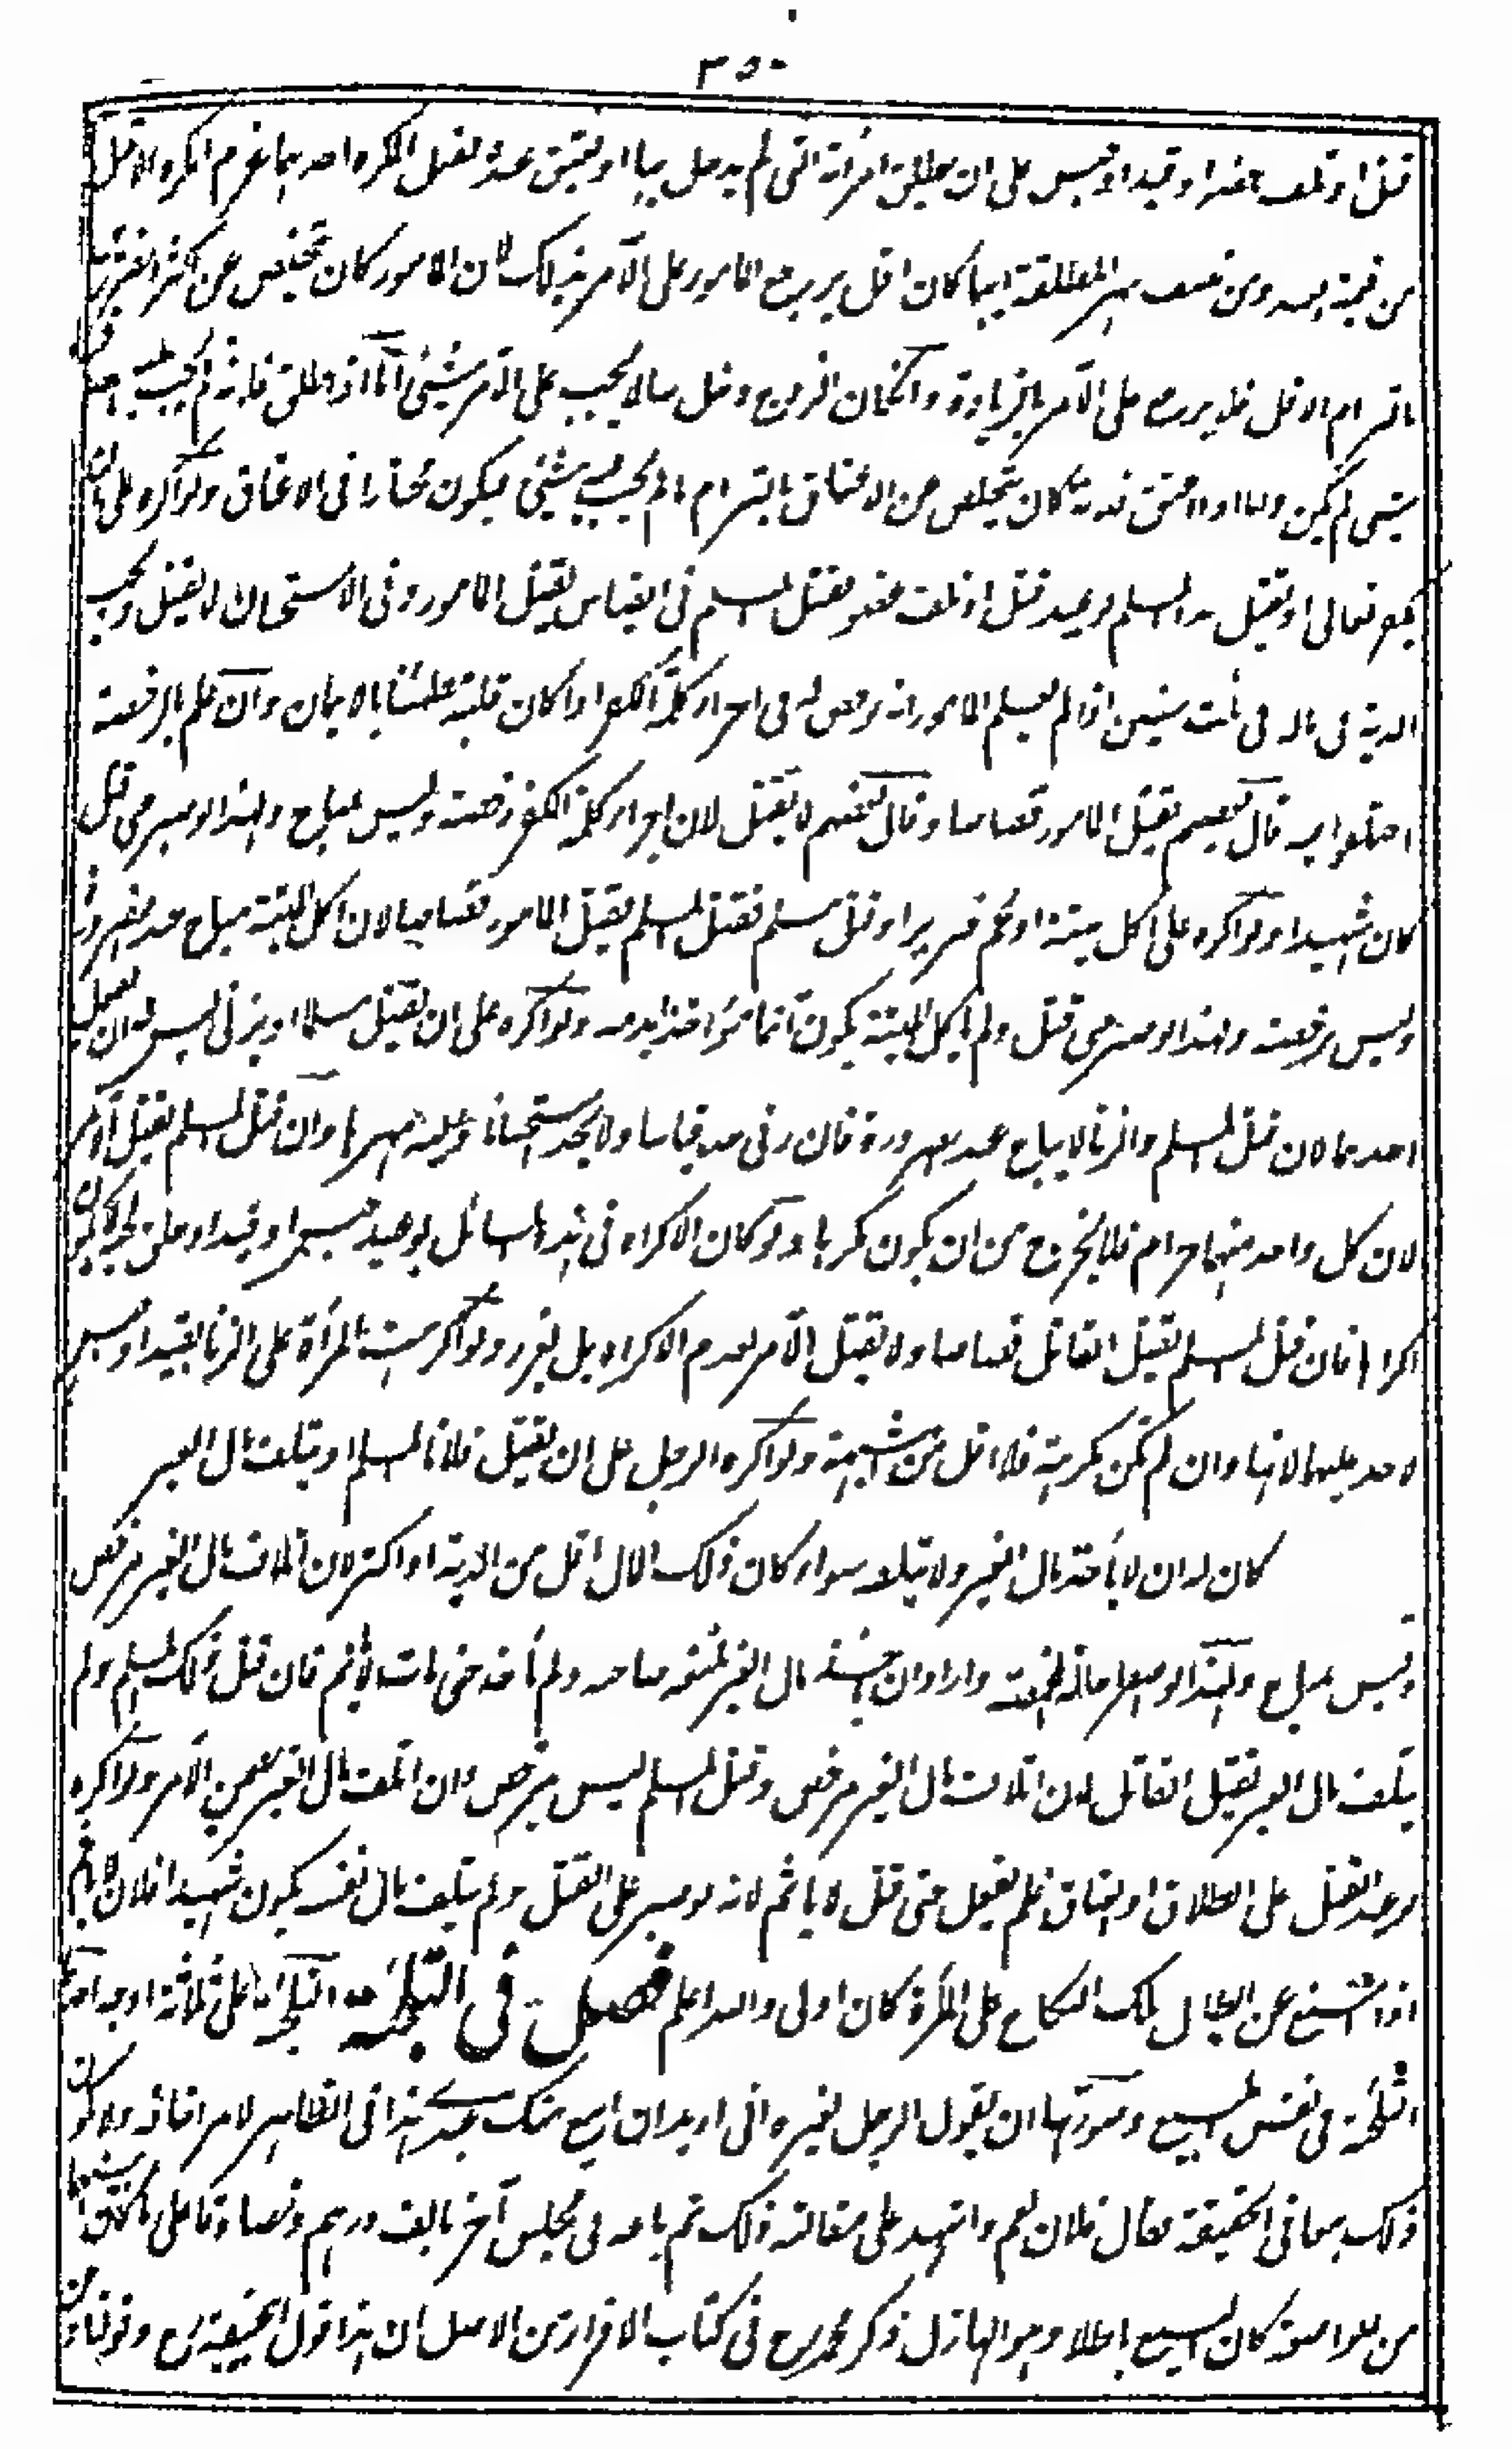 ٣٥٠
قتل او تلف عضو او قيد او حبس على ان يطلق امرأته التى لم يدخل بها او يعتق عبده ففعل المكره احدهما غرم المكره الاقل
من قيمة العبد ومن نصف مهر المطلقة ايهما كان اقل يرجع المامور على الآمر بذلك لان المامور كان تخلص عن اكثر الضررين
بالتزام الاقل فلا يرجع على الآمر بالزيادة وان كان الزوج دخل بها لا يجب على الآمر شئ اما اذا طلق فلانه لم يجب
شئ لم يكن واما اذا اعتق فلانه كان يتخلص عن الاعتاق بالتزام ما لم يجب شئ فيكون مختارا فى الاعتاق ولو اكره على ان
يكفر بالله تعالى او يقتل هذا المسلم بوعيد قتل او تلف عضو فقتل المسلم فى القياس يقتل المامور وفى الاستحسان لا يقتل ويجب
الدية فى ماله فى ثلث سنين اذا لم يعلم المامور انه يرخص له فى اجراء كلمة الكفر اذا كان قلبه مطمئنا بالايمان وان علم بالرخصة
اختلفوا فيه قال بعضهم يقتل المامور قصاصا وقال بعضهم لا يقتل لان اجراء كلمة الكفر رخصة وليس بمباح ولهذا لو صبر حتى قتل
كان شهيدا ولو اكره على اكل ميتة او لحم خنزير او قتل مسلم فقتل المسلم يقتل المامور قصاصا لان اكل الميتة مباح عند الضرورة
وليس برخصة ولهذا لو صبر حتى قتل ولم ياكل الميتة يكون آثما مؤاخذا بدمه ولو اكره على ان يقتل مسلما او يزنى ليس له ان يفعل
احدهما لان قتل المسلم والزنا لا يباح عند الضرورة فان زنى حد قياسا ولا يحد استحسانا وعليه مهرها وان قتل المسلم يقتل الآمر
لان كل واحد منهما حرام فلا يخرج من ان يكون مكرها ولو كان الاكراه فى هذه المسائل بوعيد حبس او قيد او حلق لحية لا يكون
اكراها فان قتل المسلم يقتل القاتل قصاصا ولا يقتل الآمر لعدم الاكراه بل يعزر ولو اكرهت المرأة على الزنا بقيد او حبس
لا حد عليها لانها وان لم تكن مكرهة فلا اقل من شبهة ولو اكره الرجل على ان يقتل فلانا المسلم او يتلف مال الغير
كان له ان لا ياخذ مال الغير ولا يتلفه سواء كان ذلك المال اقل من الدية او اكثر لان اتلاف مال الغير مرخص
وليس بمباح ولهذا لو اضطر حالة المخمصة واراد ان ياخذ مال الغير فمنعه صاحبه ولم ياخذ حتى مات لا ياثم فان قتل ذلك المسلم ولم
يتلف مال الغير يقتل القاتل لان اتلاف مال الغير مرخص وقتل المسلم ليس بمرخص وان اتلف مال الغير ضمن الآمر ولو اكره
بوعيد القتل على الطلاق او العتاق فلم يفعل حتى قتل لا ياثم لانه لو صبر على القتل ولم يتلف مال نفسه يكون شهيدا فلان لا ياثم
اذا امتنع عن ابطال ملك النكاح على المرأة كان اولى والله اعلم فصل فى التلجئة التلجئة على ثلاثة اوجه احدها
التلجئة فى نفس المبيع وصورتها ان يقول الرجل لغيره انى اريد ان ابيع منك عبدى هذا فى الظاهر لامر اخافه ولا يكون
ذلك بيعا فى الحقيقة فقال فلان نعم واشهد على مقالته ذلك ثم باعه فى مجلس آخر بالف درهم وتصادقا على ما كان بينهما
من المواضعة كان البيع باطلا وهو الهازل ذكر محمد رح فى كتاب الاقرار من الاصل ان هذا قول ابى حنيفة رح وقولنا